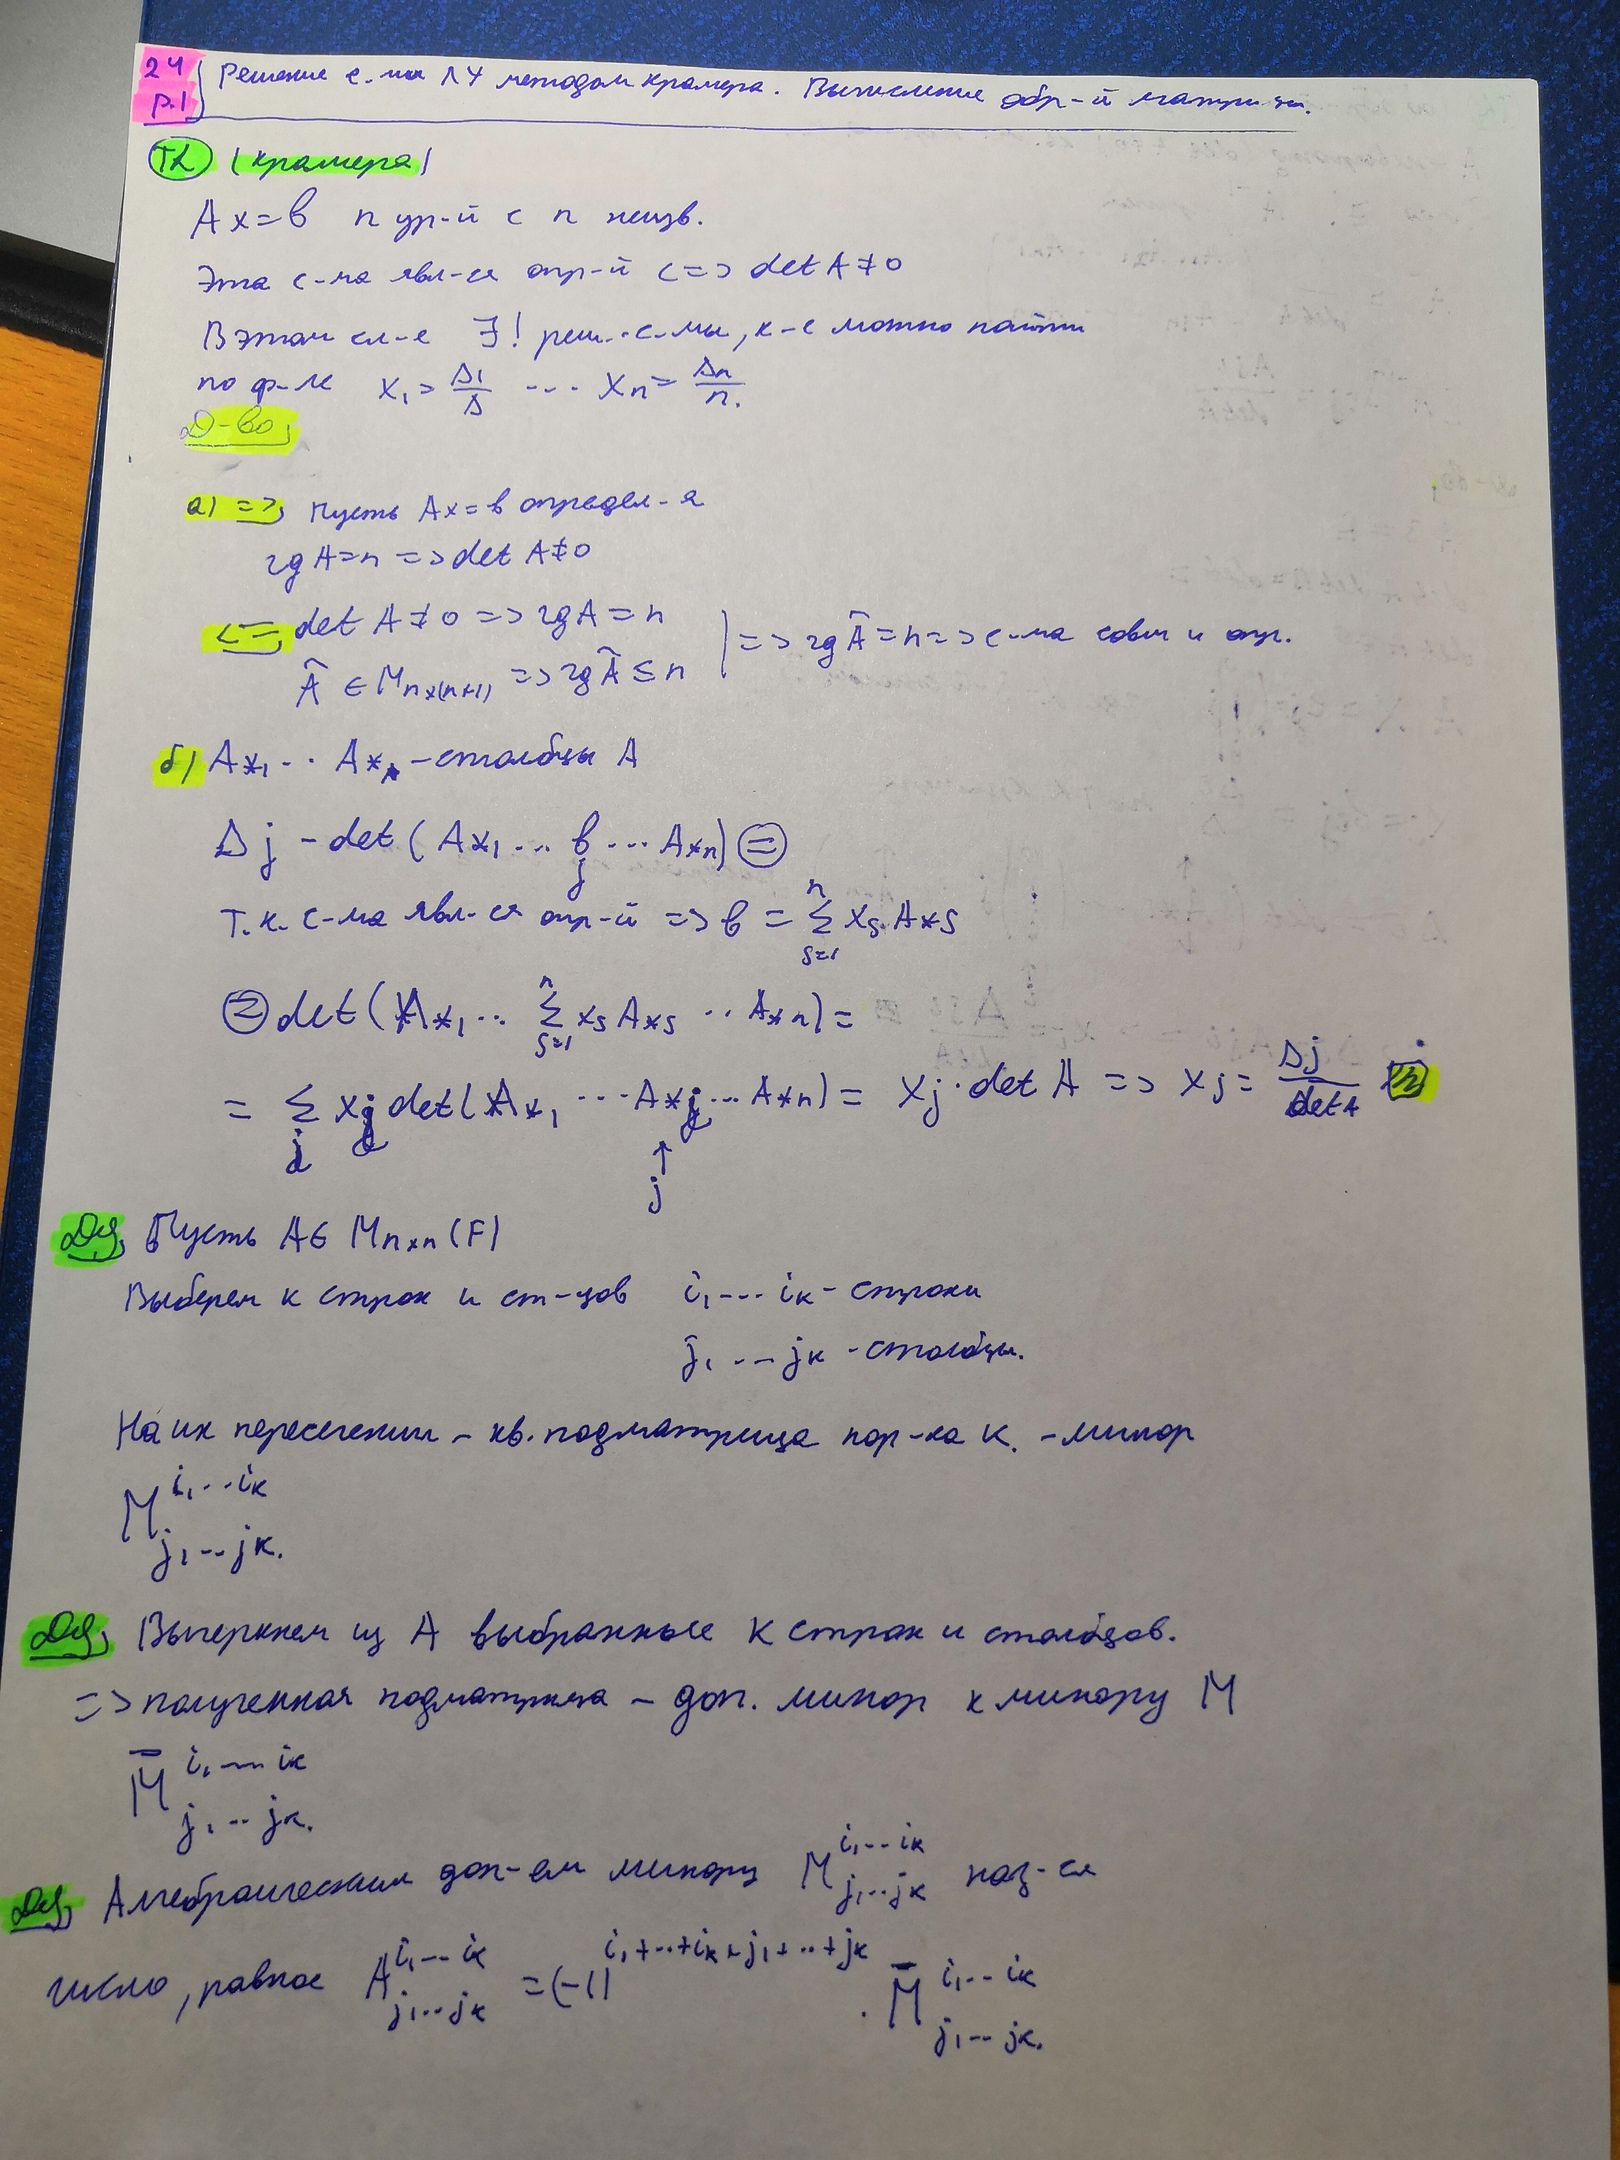 24 р.1 Решение с-мы ЛУ методом Крамера. Вычисление обр-й матрицы.
Th (Крамера)
Ax=b n ур-й с n неизв.
Эта с-ма явл-ся опр-й <=> det A ≠ 0
В этом сл-е ∃! реш. с-мы, к-е можно найти
по ф-ле x₁ = Δ₁/Δ ... xₙ = Δn/n.
Д-во
а) => Пусть Ax=b определ-а
rg A=n => det A≠0
<= det A ≠ 0 => rg A = n
à ∈ Mn×(n+1) => rg à ≤ n | => rg à = n => с-ма совм и опр.
б) A*₁ .. A*n - столбцы A
Δj - det (A*₁ ... b ... A*n) =
j
Т.к. с-ма явл-ся опр-й => b = Σ xs A*s
n
s=1
= det (A*₁ .. Σ xs A*s .. A*n) =
n
s=1
= Σ xj det (A*₁ ... A*j ... A*n) = xj · det A => xj = Δj/det A
j
↑
j
Df Пусть A∈ Mn×n (F)
Выберем k строк и ст-цов i₁ ... ik - строки
j₁ ... jk - столбцы.
На их пересечении - кв. подматрица пор-ка k. - минор
M i₁...ik j₁...jk.
Df Вычеркнем из A выбранные k строк и столбцов.
=> полученная подматрица - доп. минор к минору M
M̄ i₁...ik j₁...jk.
Df Алгебраическим доп-ем минору M i₁...ik j₁...jk наз-ся
число, равное A i₁...ik j₁...jk = (-1) i₁+...+ik+j₁+...+jk · M̄ i₁...ik j₁...jk.